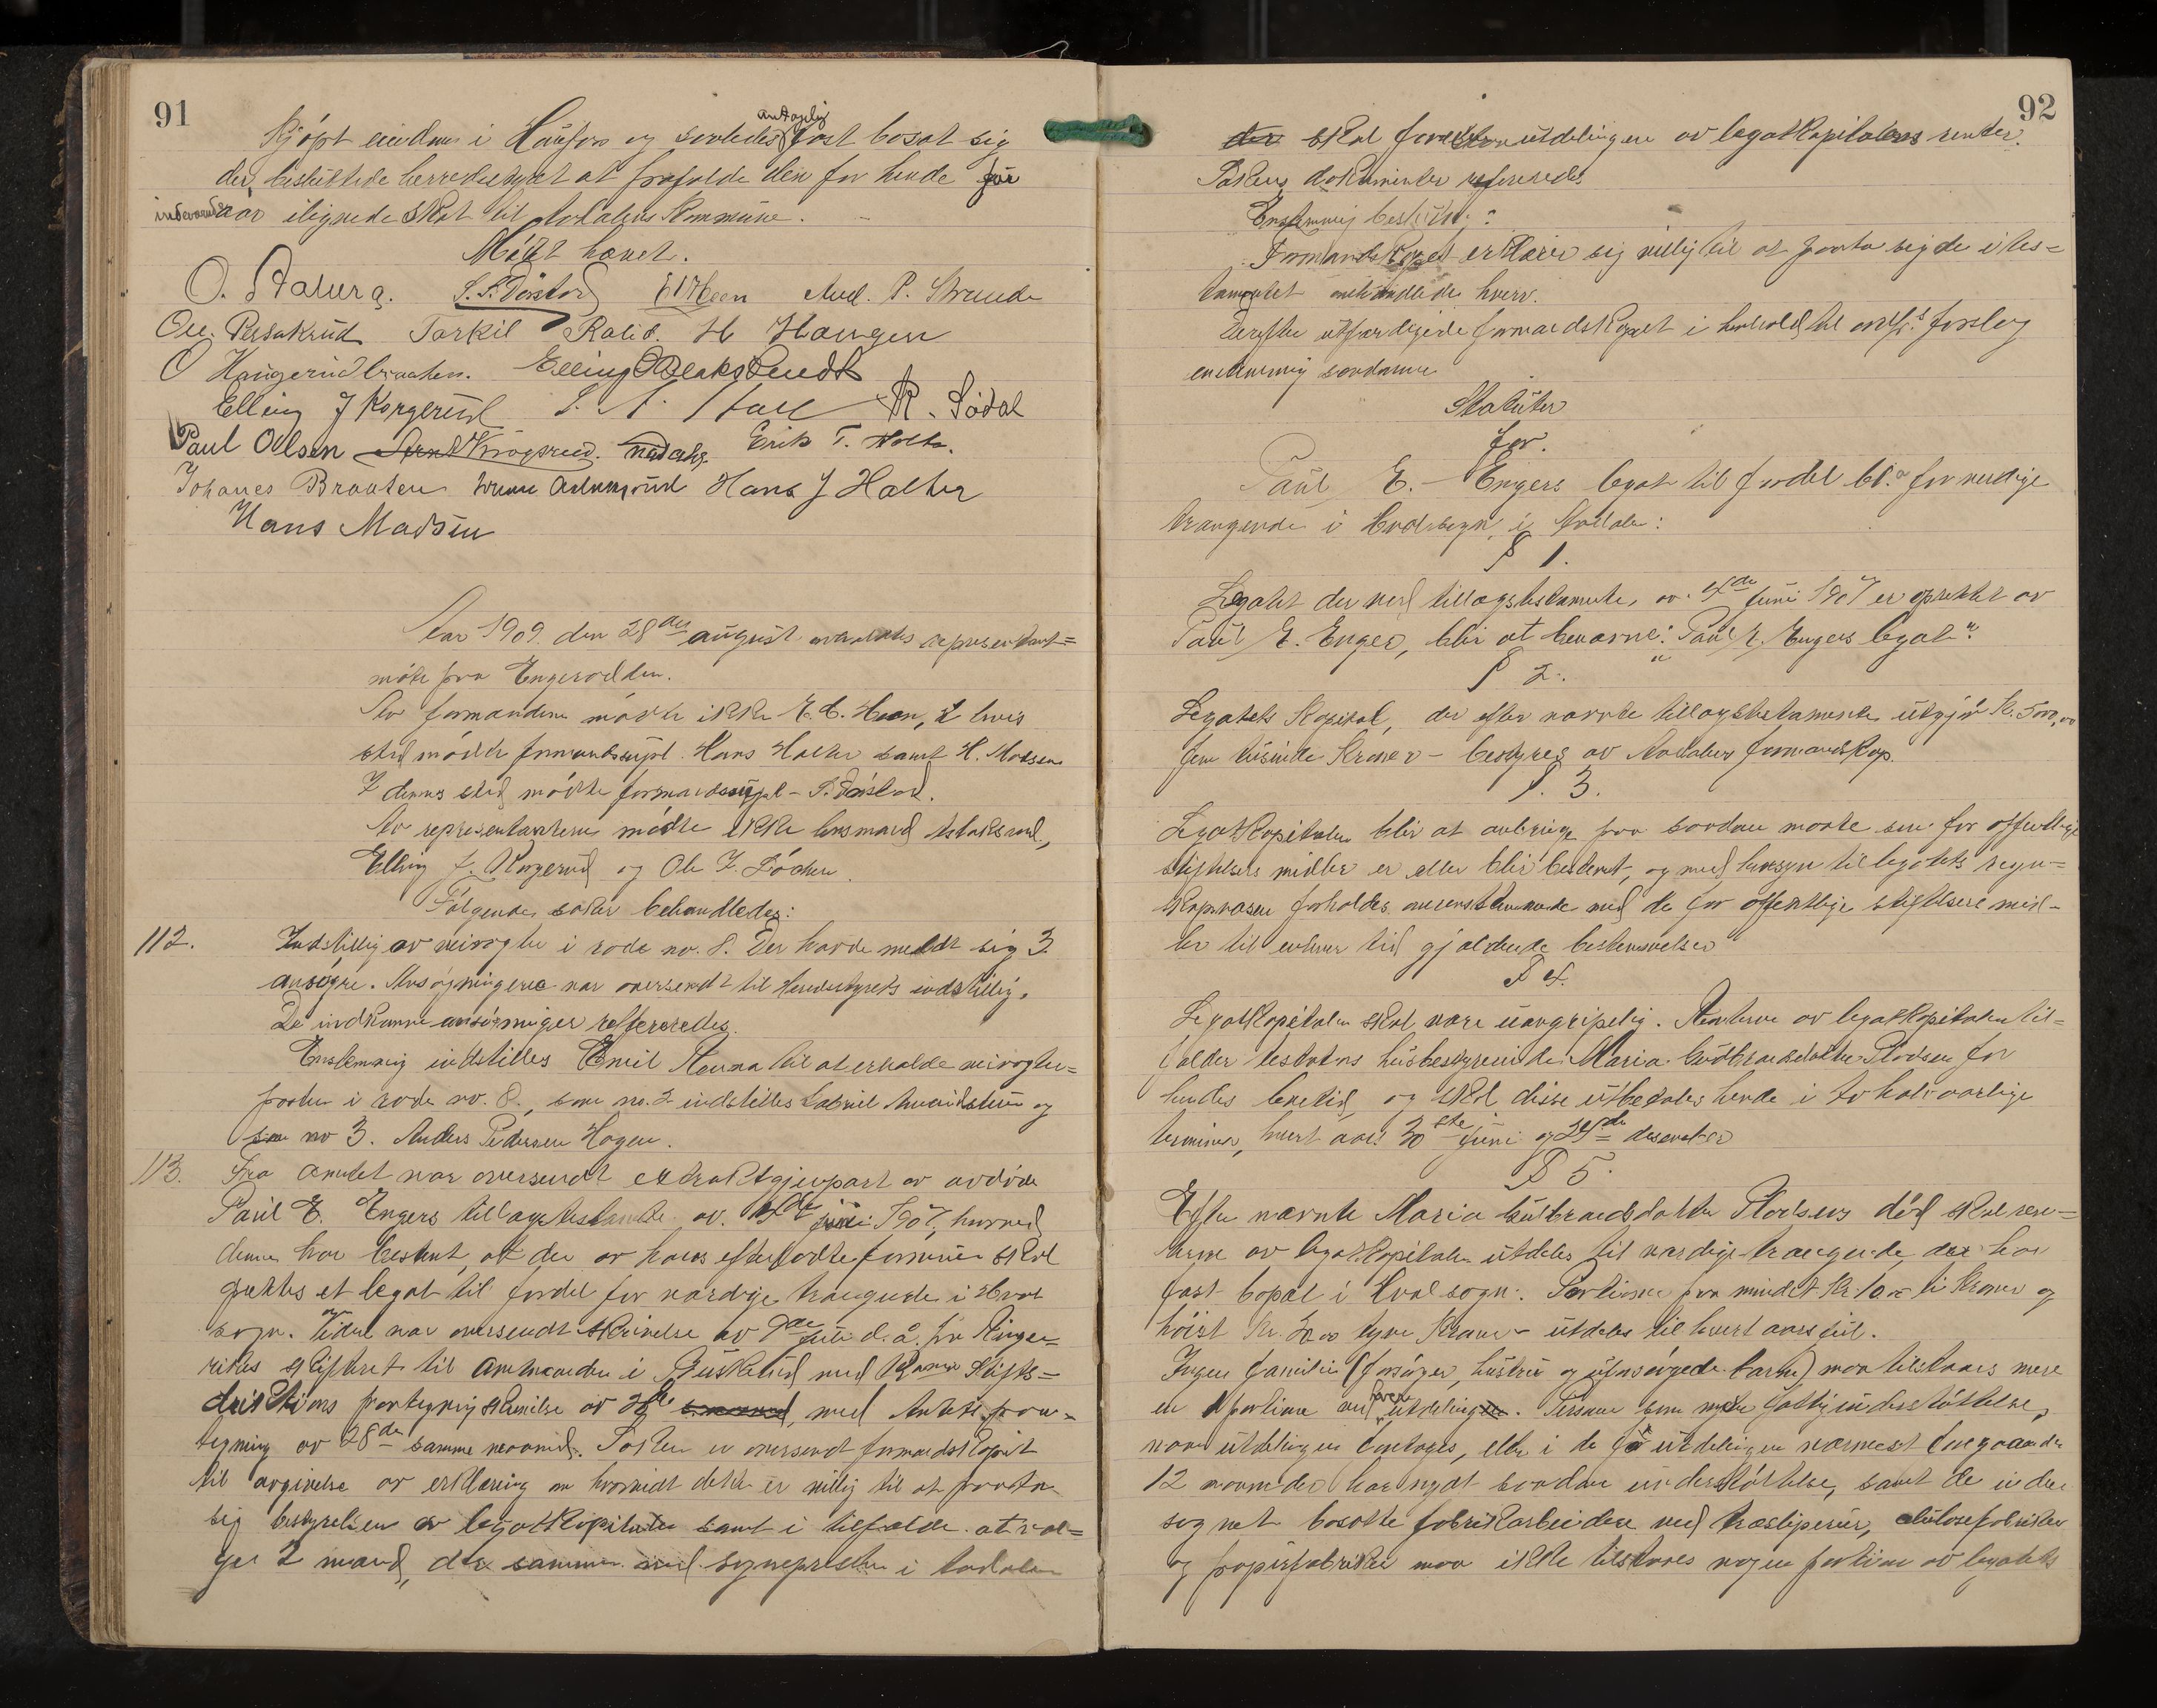 91
kjøpt eiendom i Hønefos og saaledes antagelig fast bosat sig
der, besluttede herredstyret at frafalde den for hende for
indeværende aar ilignede skat til Aadalens kommune.
Mötet hævet.
O. Stalura. E. Hoen And. P. Strande
Ole Persakrud Torkil H Haugen
O Haugerudbraaten. Elling
Elling J Korgerud R. Sødal
Paul Olsen Erik T. Holte.
Johanes Braaten Hans J Halter
Hans Madsen
Aar 1909 den 28de august avholdtes representant=
møte paa Engerodden.
Av formændene mødte ikke E. E. Hoen, i hvis
sted mødte formandssupl. Hans Halter samt H. Madsen
I dennes sted mødte formandssupl
Av representanterne mødte ikke lensmand
Elling J. Korgerud og Ole
Følgende saker behandledes:
112. Indstillig av veivogter i rode no. 8. Der havde meldt sig 3
ansøgre. Ansøgningerne var oversendt til Herredsstyrets indstillig.
De indkomne ansøgninger refereredes.
Enstemmig indstilles Emil til at erholde veivogter=
posten i rode no. 8., som no. 2 indstilles Gabriel og
som no 3. Anders Pedersen Hagen.
113. Fra amtet var oversendt ekstraktgjenpart av avdøde
Paul E. Engers tillægstestamente av. 4de juni 1907, hvorved
denne har bestemt, at der av hans efterladte formue skal
oprettes et legat til fordel for værdige trængende i Hval
sogn. Videre var oversendt skrivelse av juli d. å. fra Ringe=
rikes skifteret til amtmanden i Buskerud med Kra Stifts=
direktions paategningsskrivelse av med Amtets paa=
tegning av 28de samme maaned. Saken er oversendt formandskapet
til avgivelse av erklæring om hvorvidt dette er villig til at paata
sig bestyrelsen av legatkapitalen samt i tilfælde at væl=
ge 2 mænd, der sammen med sognepresten i Aadalen
92
skal foreta utdelingen av legatkapitalens renter.
Sakens dokumenter refereredes.
Enstemmig beslutning:
Formandskapet erklærer sig villig til at paata sig de i tes=
tamentet omhandlede hverv.
Derefter utfærdigede formandskapet i henhold til ordf.s forslag
enstemmig saadanne
Statuter
for
Paul E. Engers legat til fordel for verdige
trængende i Hvalsogn i Aadalen:
§ 1.
Legatet der ved tillægstestamente, av. 4de juni 1907 er oprettet av
Paul E. Enger, blir at benævne: "Paul E. Engers legat".
§ 2.
Legatets kapital, der efter nævnte tillægstestamente utgjør Kr. 5000,00
fem tusinde kroner – bestyres av Aadalens formandskap.
§. 3.
Legatkapitalen blir at anbringe paa saadan maate som for offentlige
stiftelsers midler er eller blir bestemt, og med hensyn til legatets regn=
skapsvæsen forholdes overensstemmende med de for offentlige stiftelsers mid-
ler til enhver tid gjældende bestemmelser
§ 4.
Legatkapitalen skal være uangripelig. Renterne av legatkapitalen til=
falder testators husbestyrerinde Maria Gudbrandsdatter for
hendes levetid, og skal disse utbetales hende i to halvaarlige
terminer, hvert aars 30te juni og de desember
§ 5.
Efter nævnte Maria Gudbrandsdatter død skal ren=
terne av legatkapitalen utdeles til værdige trængende, der har
fast bopæl i Hval sogn. Portioner paa mindst Kr. 10.00 ti kroner og
høist Kr. 20.00 tyve kroner utdeles til hvert aars jul.
Ingen familie (forsørger, hustru og uforsørgede barn) maa tilstaaes mere
en 1 portion ved hver utdeling. Personer som nyder fattigunderstøttelse,
naar utdelingen foretages, eller i de før utdelingen nærmest foregaaende
12 maaneder har nydt saadan understøttelse, samt de i dette
sognet bosatte fabrikarbeidere ved træsliperier, cellulosefabriker
og papirfabriker maa ikke tilstaaes nogen portion av legatets